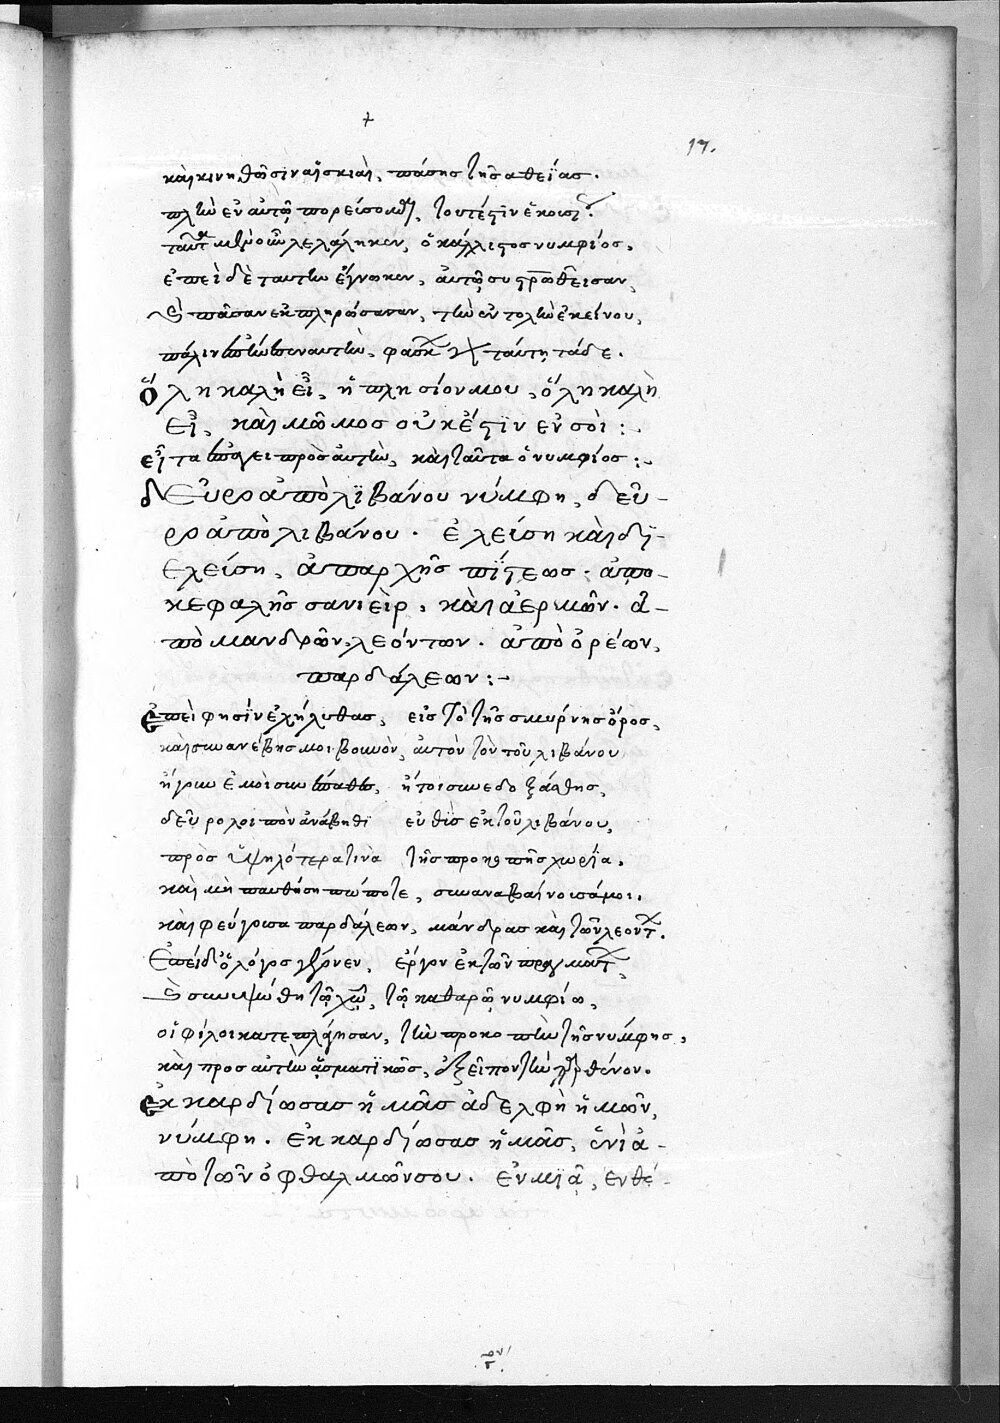 17.
καὶ κινηθῶσιν αἱ σκιαὶ, πάσης τῆς ἀθεΐας.
πλὴν ἐν αὐτῶ πορεύσομαι, τουτέστιν
ταῦτα μὲν οὖν λελάληκεν, ὁ κάλλιστος νυμφίος,
ἐπεὶ δὲ ταύτην ἔγνωκεν, αὐτῶ συσταυρωθεῖσαν,
καὶ πᾶσαν ἐκπληρώσασαν, τὴν ἐντολὴν ἐκείνου,
πάλιν ταύτη τάδε.
ὅλη καλὴ εἶ, ἡ πλησίον μου, ὅλη καλὴ
εἶ, καὶ μῶμος οὐκ ἔστιν ἐν σοὶ :
εἶτα λέγει πρὸς αὐτὴν, καὶ ταῦτα ὁ νυμφίος :
δεῦρο ἀπὸ λιβάνου νύμφη, δεῦ-
ρο ἀπὸ λιβάνου. ἐλεύση καὶ δι-
ελεύση, ἀπ' ἀρχῆς πίστεως. ἀπὸ
κεφαλῆς σανιεὶρ, καὶ ἀερμῶν. ἀ-
πὸ μανδρῶν λεόντων. ἀπὸ ὀρέων,
παρδάλεων :
ἐπεί φησιν ἐλήλυθας, εἰς τὸ τῆς σμύρνης ὄρος,
καὶ συνανέβης μοι βουνὸν, αὐτὸν τὸν τοῦ λιβάνου
ἤγουν ἐμοὶ ἤτοι συνεδοξάσθης,
δεῦρο λοιπὸν ἀνάβηθι εὐθὺς ἐκ τοῦ λιβάνου,
πρὸς ὑψηλότερα τινὰ τῆς προκοπῆς χωρία.
καὶ μὴ παυθήση πώποτε, συναναβαίνουσά μοι.
καὶ φεύγουσα παρδάλεων, μάνδρας καὶ τῶν λεόντων.
Ἐπεὶ δ' ὁ λόγος γέγονεν, ἔργον ἐκ τῶν πραγμάτων,
καὶ συνυψώθη τῶ χῶ, τῶ καθαρῶ νυμφίω,
οἱ φίλοι κατεπλάγησαν, τὴν προκοπὴν τῆς νύμφης,
καὶ πρὸς αὐτὴν ἀσματικῶς, ἐξεῖπον τὴν παρθένον.
ἐκκαρδίωσας ἡμᾶς ἀδελφὴ ἡμῶν,
νύμφη. ἐκκαρδίωσας ἡμᾶς, ἑνὶ ἀ-
πὸ τῶν ὀφθαλμῶν σου. ἐν μιᾶ, ἐνθέ-